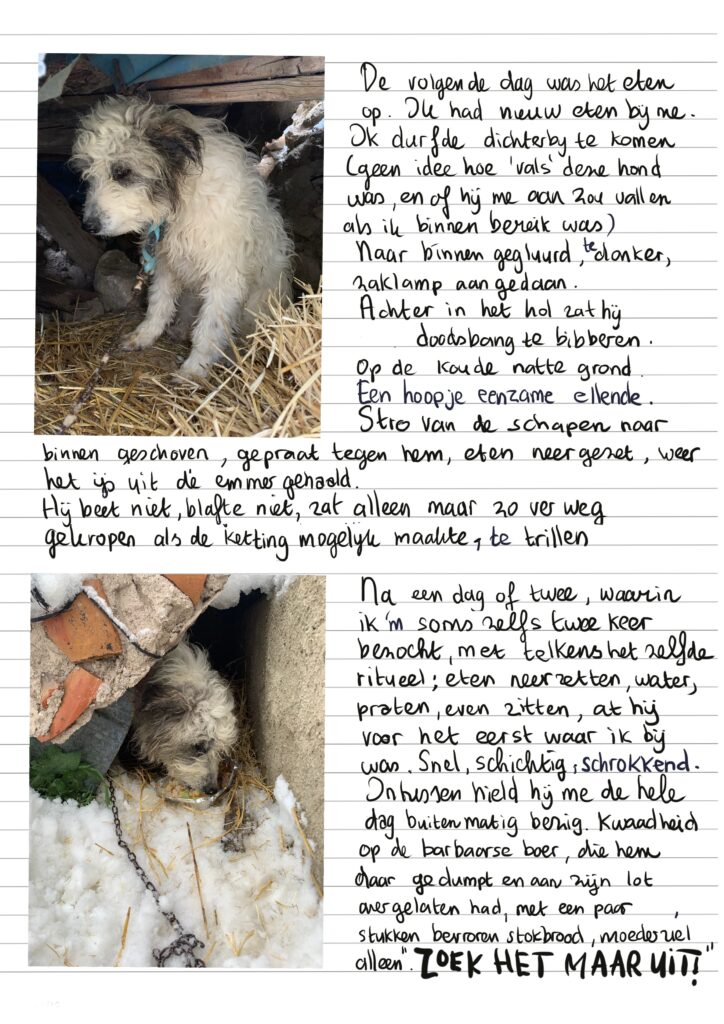 De volgende dag was het eten
op. Ik had nieuw eten bij me.
Ik durfde dichterby te komen
(geen idee hoe 'vals' deze hond
was, en of hij me aan zou vallen
als ik binnen bereik was)
Naar binnen gegluurd, te donker,
zaklamp aangedaan.
Achter in het hol zat hij
doodsbang te bibberen.
Op de koude natte grond.
Een hoopje eenzame ellende.
Stro van de schapen naar
binnen geschoven, gepraat tegen hem, eten neergezet, weer
het ijs uit de emmer gehaald.
Hij beet niet, blafte niet, zat alleen maar zo ver weg
gekropen als de ketting mogelijk maakte, te trillen
Na een dag of twee, waarin
ik 'm soms zelfs twee keer
bezocht, met telkens het zelfde
ritueel; eten neerzetten, water,
praten, even zitten, at hij
voor het eerst waar ik bij
was. Snel, schichtig, schrokkend.
Ontussen hield hij me de hele
dag buitenmatig bezig. Kwaadheid
op de barbaarse boer, die hem
daar gedumpt en aan zijn lot
overgelaten had, met een paar ,
stukken bevroren stokbrood, moederziel
alleen". "ZOEK HET MAAR UIT!"